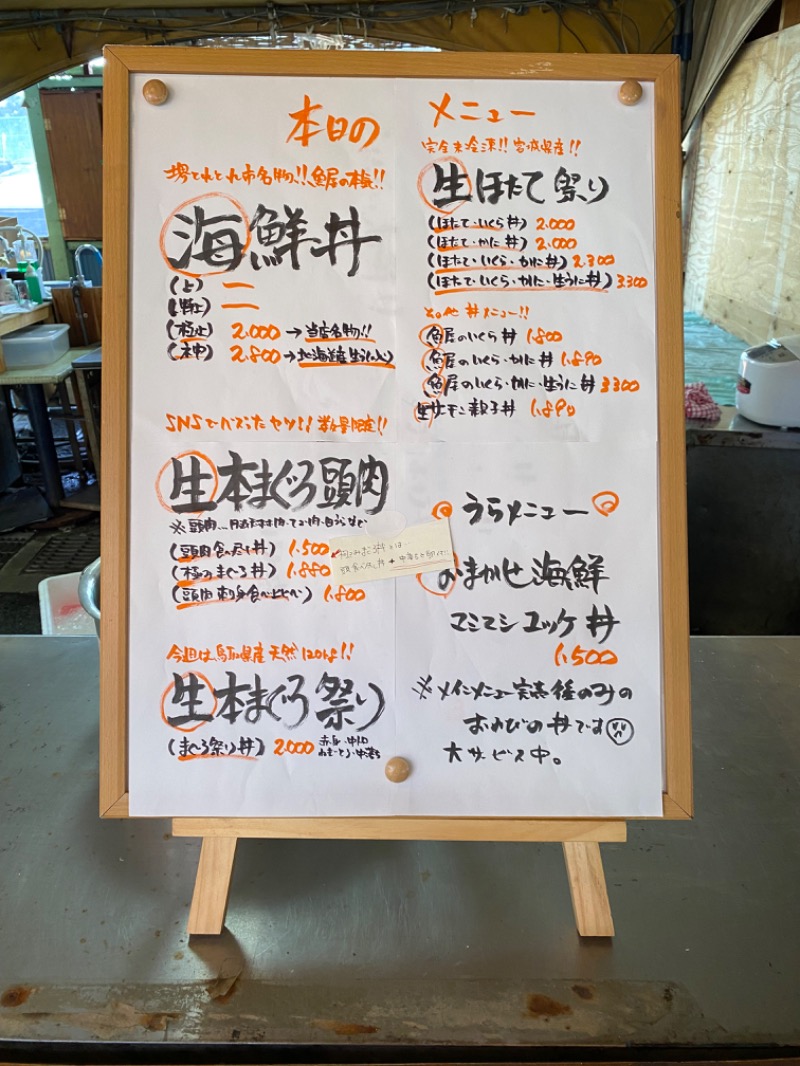 本日の
堺とれとれ市名物!!魚屋の極!!
海鮮丼
(上) 一
(特上) 一
(極上) 2.000→当店名物!!
(神) 2.800→北海道産生うに入り
SNSでバズったヤツ!!数量限定!!
生本まぐろ頭肉
※頭肉…
(頭肉食べ比べ丼) 1.500
(極のまぐろ丼) 1.880
(頭肉刺身食べ比べ) 1.800
今週は、鳥取県産天然120kg!!
生本まぐろ祭り
(まぐろ祭り丼) 2.000 赤身・中トロ
中落ち
メニュー
完全未冷凍!!宮城県産!!
生ほたて祭り
(ほたて・いくら丼) 2.000
(ほたて・かに丼) 2.000
(ほたて・いくら・かに丼) 2.300
(ほたて・いくら・かに・生うに丼) 3.300
その他丼メニュー!!
魚屋のいくら丼 1.800
魚屋のいくら・かに丼 1.890
魚屋のいくら・かに・生うに丼 3.300
生サーモン親子丼 1.890
うらメニュー
おまかせ海鮮
マシマシユッケ丼
1.500
※メインメニュー完売後のみの
おわびの丼です
大サービス中。